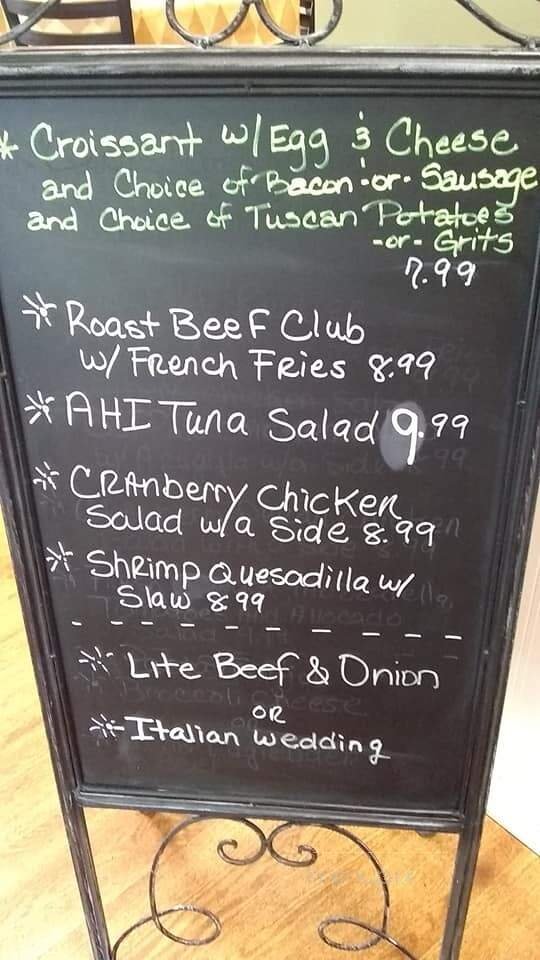 * Croissant w/ Egg & Cheese
and Choice of Bacon -or- Sausage
and Choice of Tuscan Potatoes
-or- Grits
7.99
* Roast Beef Club
w/ French Fries 8.99
* AHI Tuna Salad 9.99
* CRAnberry Chicken
Salad w/a Side 8.99
* Shrimp Quesadilla w/
Slaw 8.99
* Lite Beef & Onion
OR
* Italian Wedding